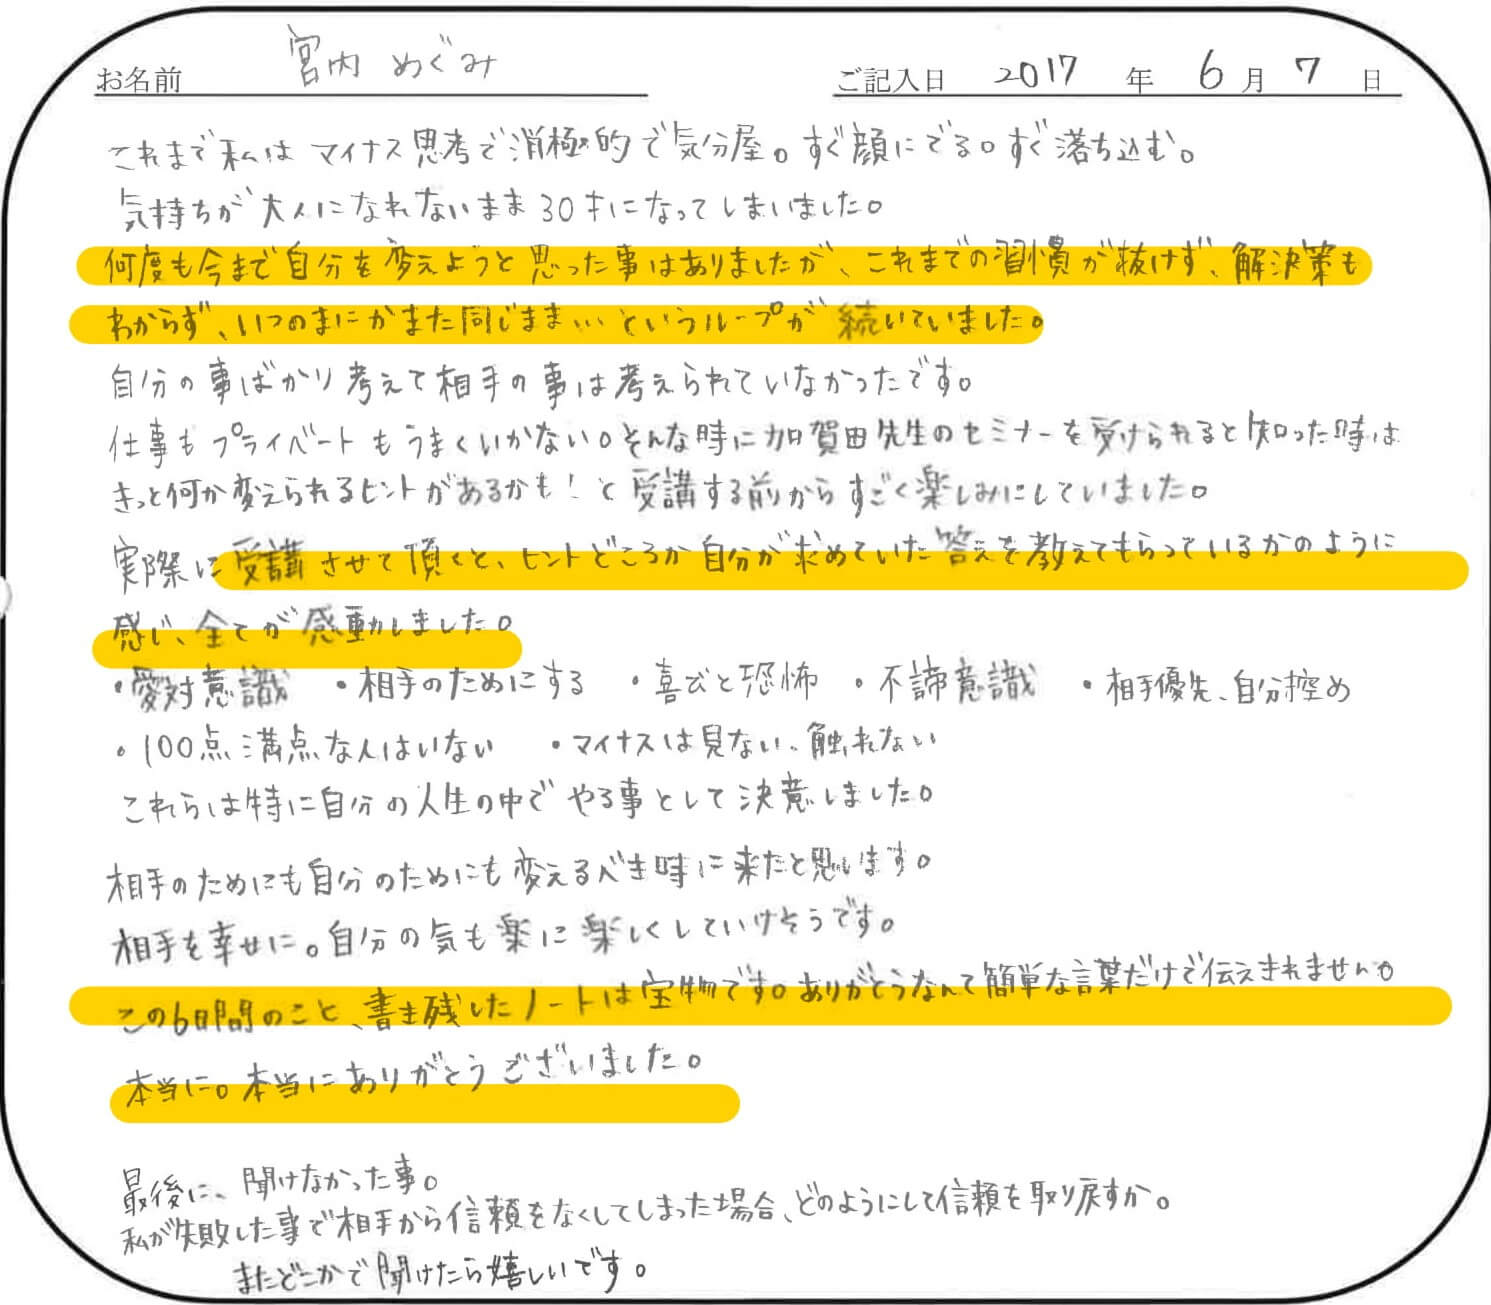 お名前 宮内 めぐみ ご記入日 2017 年 6 月 7 日
これまで私は マイナス思考で消極的で気分屋。すぐ顔にでる。すぐ落ち込む。
気持ちが大人になれないまま30才になってしまいました。
何度も今まで自分を変えようと思った事はありましたが、これまでの習慣が抜けず、解決策も
わからず、いつのまにかまた同じまま… というループが続いていました。
自分の事ばかり考えて相手の事は考えられていなかったです。
仕事もプライベートもうまくいかない。そんな時に加賀田先生のセミナーを受けられると知った時は
きっと何か変えられるヒントがあるかも!と受講する前からすごく楽しみにしていました。
実際に受講させて頂くと、ヒントどころか自分が求めていた答えを教えてもらっているかのように
感じ、全てが感動しました。
・愛対意識 ・相手のためにする ・喜びと恐怖 ・不諦意識 ・相手優先、自分控め
・100点満点な人はいない ・マイナスは見ない、触れない
これらは特に自分の人生の中でやる事として決意しました。
相手のためにも自分のためにも変えるべき時に来たと思います。
相手を幸せに。自分の気も楽に楽しくしていけそうです。
この6日間のこと、書き残したノートは宝物です。ありがとうなんて簡単な言葉だけで伝えきれません。
本当に。本当にありがとうございました。
最後に、聞けなかった事。
私が失敗した事で相手から信頼をなくしてしまった場合、どのようにして信頼を取り戻すか。
またどこかで聞けたら嬉しいです。